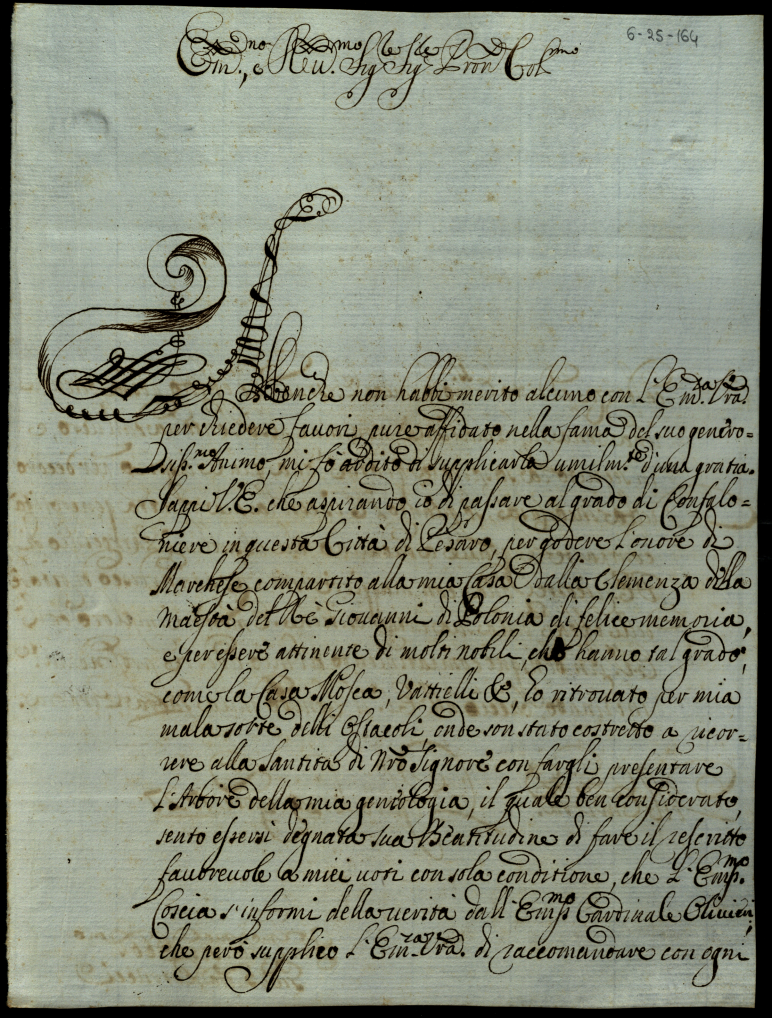 6-25-164
Em.mo, e Reu.mo Sig.re Sig.re P.ron Col.mo
Abbenche non habbi merito alcuno con l'Em.za V.ra
per chiedere favori, pure affidato nella fama del suo genero=
siss.mo Animo, mi fò ardito di supplicarla umilm.te d'una gratia.
Sappi V.E. che aspirando io di passare al grado di Confalo=
niere in questa Città di Pesaro, per godere l'onore di
Marchese compartito alla mia Casa dalla Clemenza della
maestà del Rè Giovanni di Polonia di felice memoria,
e per essere attinente di molti nobili, che hanno tal grado,
come la Casa Mosca, Vattielli &, ho ritrovato per mia
mala sorte delli ostacoli, onde son stato costretto a ricor=
rere alla Santità di Nro Signore con fargli presentare
l'Arbore della mia geneologia, il quale ben considerato,
sento essersi degnata sua Beatitudine di fare il rescritto
favorevole a miei voti con sola conditione, che l'Emiss.mo
Coscia s'informi della verità dall'Emiss.mo Cardinale Olivieri,
che però supplico l'Em.za V.ra di raccomandare con ogni